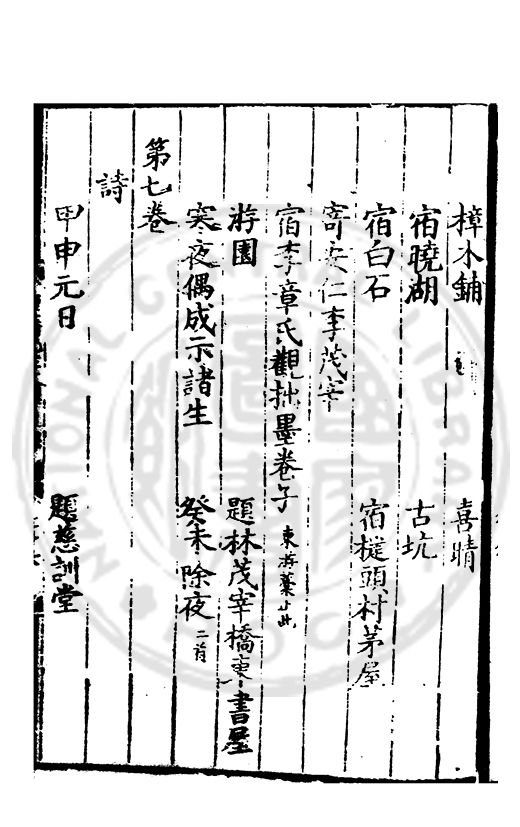 樟木鋪 喜晴
宿曉湖 古坑
宿白石 宿槎頭村茅屋
寄安仁李茂宰
宿李章氏觀拙墨卷子 東游藁止此
游園 題林茂宰橋東書屋
寒夜偶成示諸生 癸未除夜 二首
第七卷
詩
甲申元日 題慈訓堂